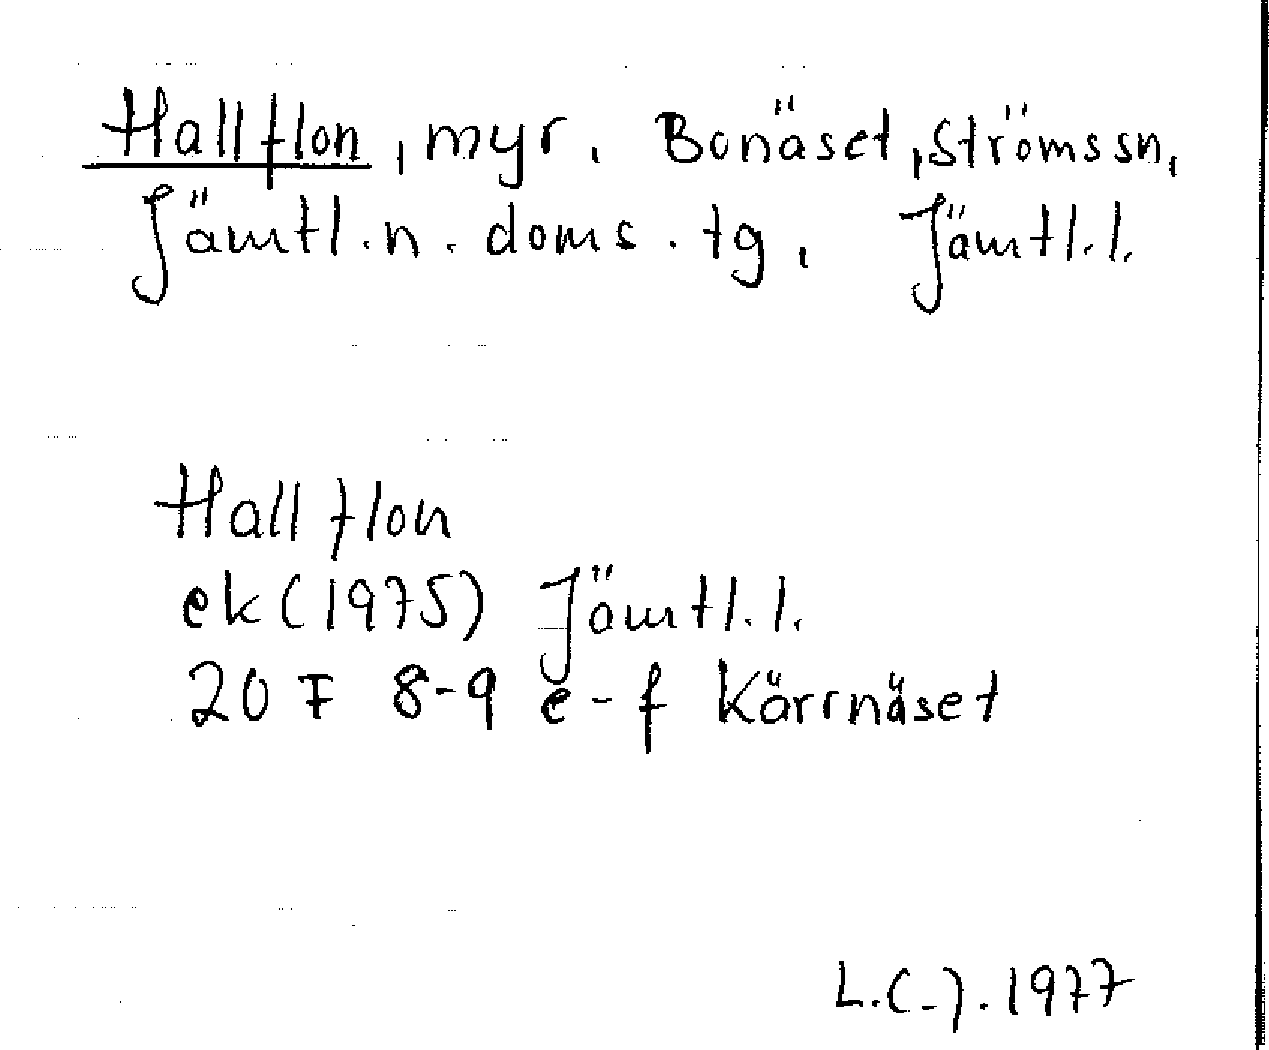 Hallflon, myr, Bonäset, Ströms sn,
Jämtl. n. doms. tg, Jämtl. l.
Hallflon
ek (1975) Jämtl. l.
20 F 8-9 e-f Kärrnäset
L.C-J. 1977